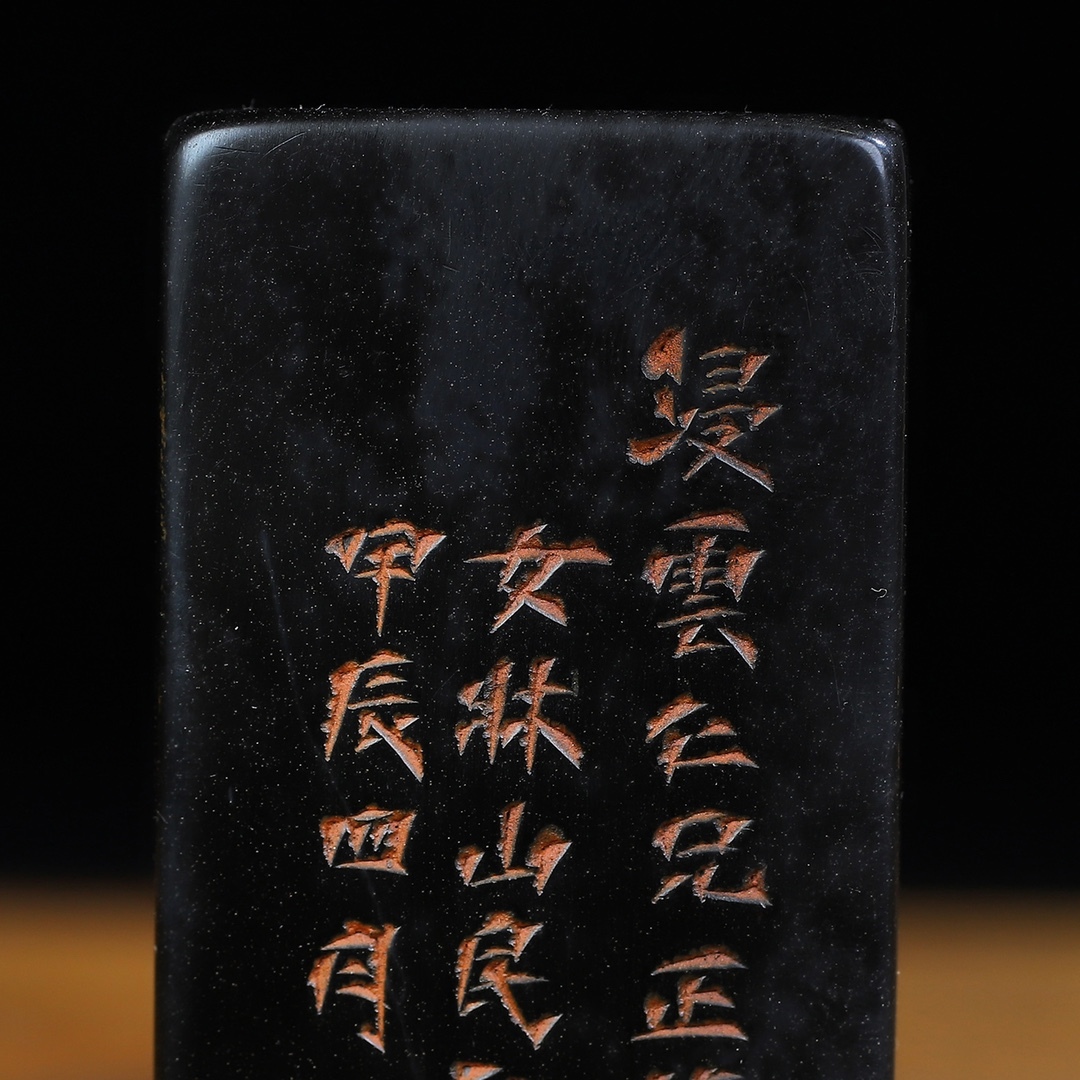 浸雲仁兄正
女牀山民
甲辰四月